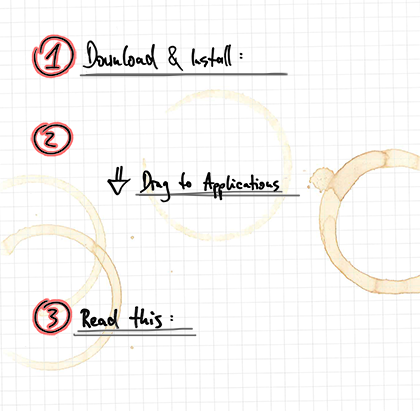 1 Download & Install:
2
Drag to Applications
3 Read this: